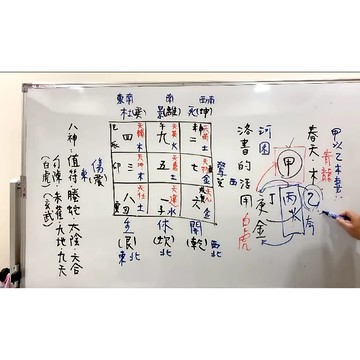 甲以乙妹妻
青龍
春天.木
甲
乙
丙
火
丁
庚
金
白虎
河圖
洛書的活用
東南
南
西南
杜(巽)
景(離)
死(坤)
四
九
二
三
五
七
八
一
六
卯
木
火
土
金
水
傷(震)
東
西
生(艮)
休(坎)
開(乾)
東北
北
西北
八神:值符.騰蛇.太陰.六合
勾陳.朱雀.九地.九天
(白虎)
(玄武)